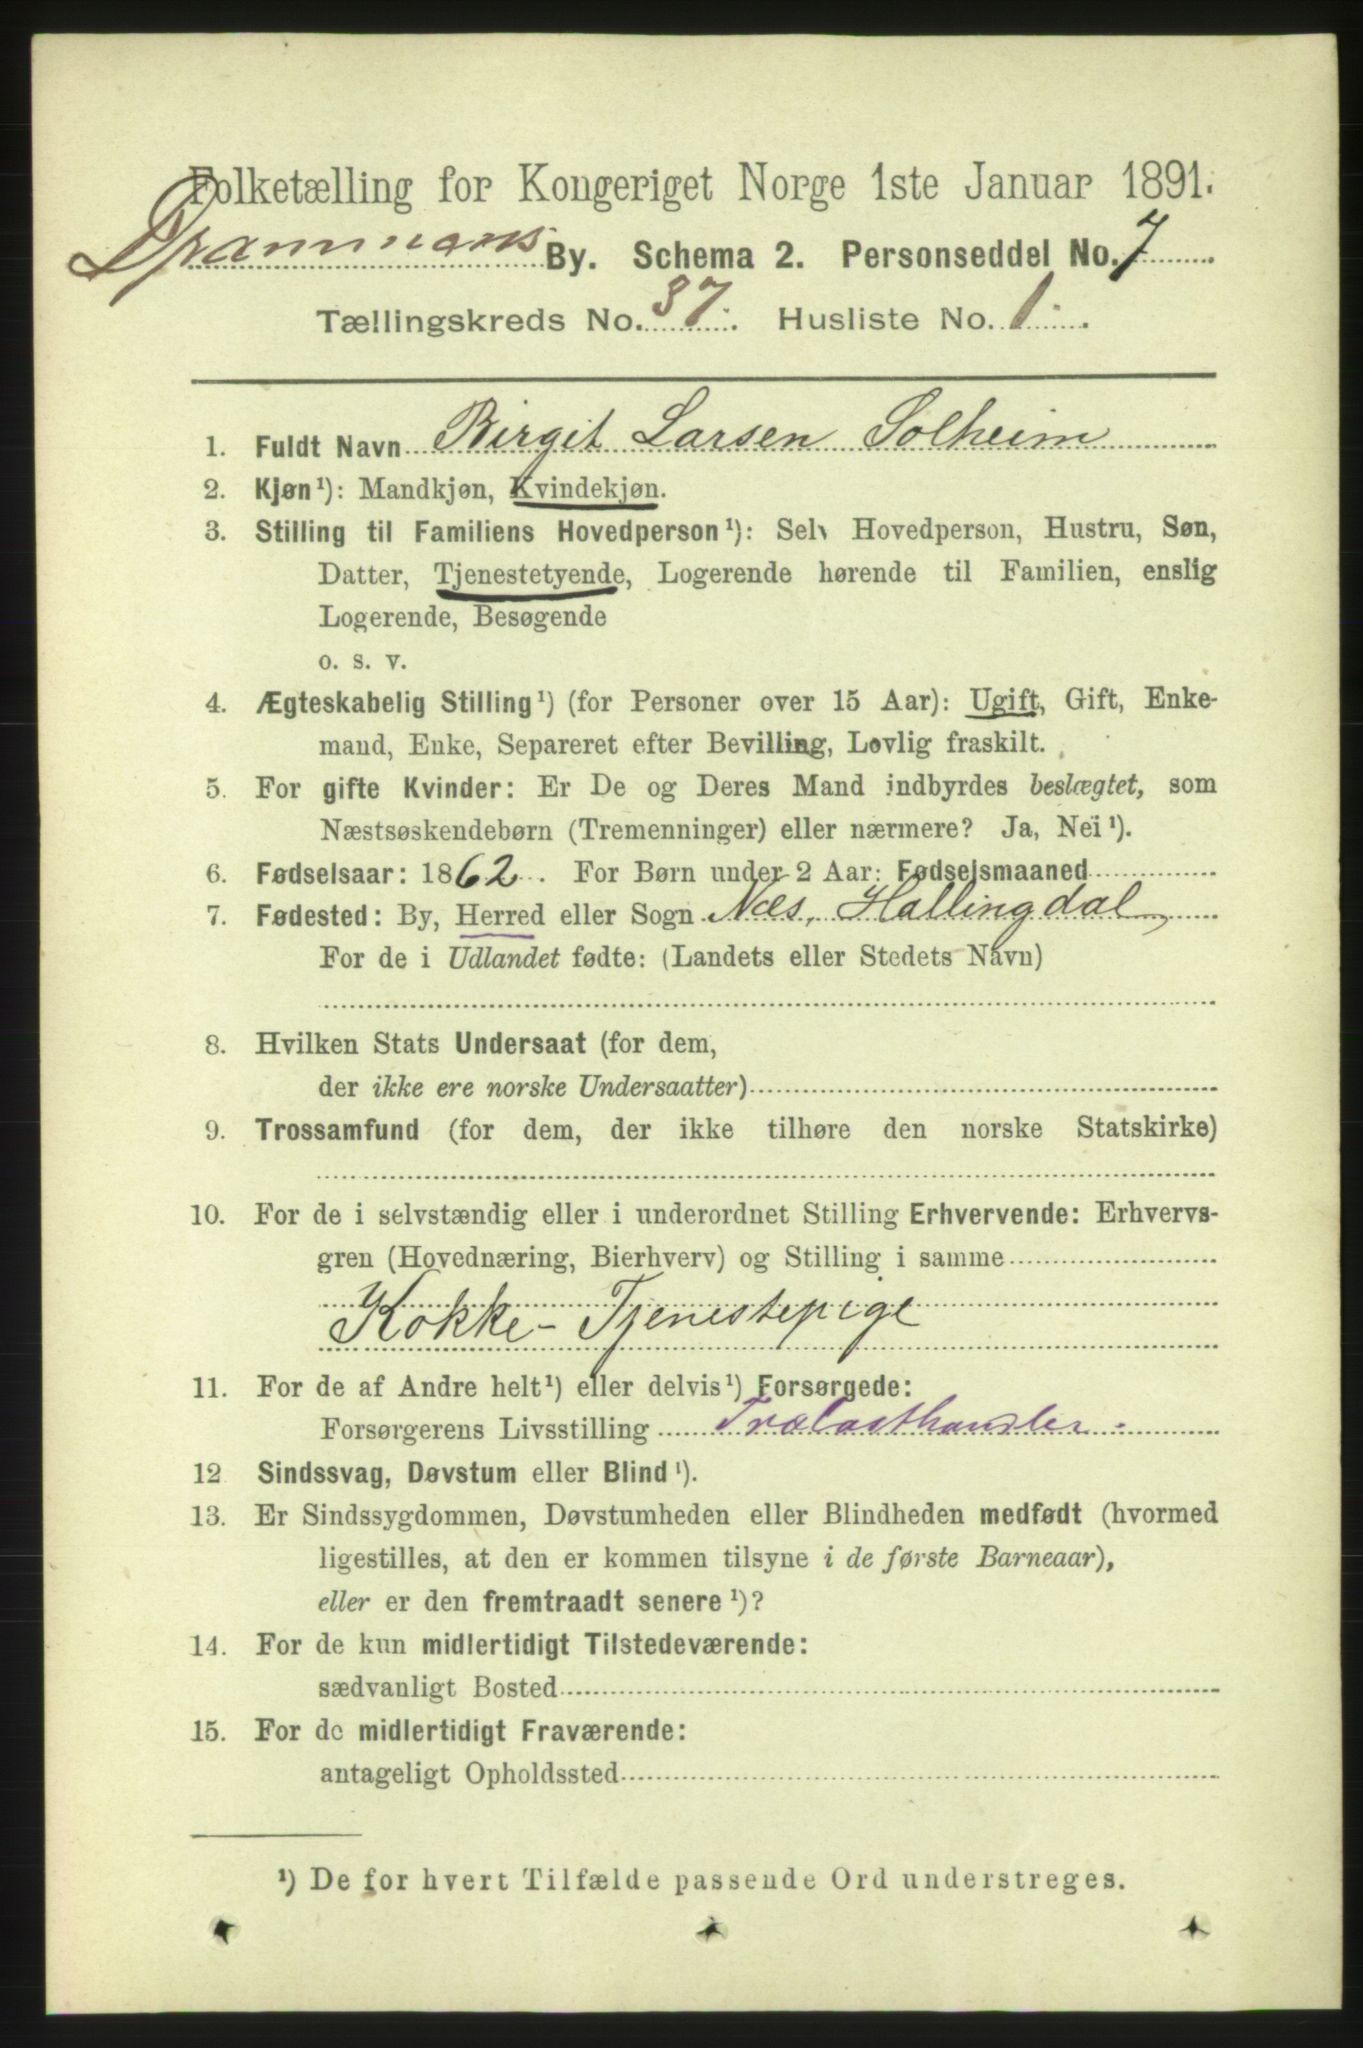 Folketælling for Kongeriget Norge 1ste Januar 1891.
Drammens By. Schema 2. Personseddel No. 7
Tællingskreds No. 37. Husliste No. 1.
1. Fuldt Navn Birgit Larsen Solheim
2. Kjøn¹): Mandkjøn, Kvindekjøn.
3. Stilling til Familiens Hovedperson¹): Selv Hovedperson, Hustru, Søn,
Datter, Tjenestetyende, Logerende hørende til Familien, enslig
Logerende, Besøgende
o. s. v.
4. Ægteskabelig Stilling¹) (for Personer over 15 Aar): Ugift, Gift, Enke-
mand, Enke, Separeret efter Bevilling, Lovlig fraskilt.
5. For gifte Kvinder: Er De og Deres Mand indbyrdes beslægtet, som
Næstsøskendebørn (Tremenninger) eller nærmere? Ja, Nei¹).
6. Fødselsaar: 1862. For Børn under 2 Aar: Fødselsmaaned
7. Fødested: By, Herred eller Sogn Næs, Hallingdal,
For de i Udlandet fødte: (Landets eller Stedets Navn)
8. Hvilken Stats Undersaat (for dem,
der ikke ere norske Undersaatter)
9. Trossamfund (for dem, der ikke tilhøre den norske Statskirke)
10. For de i selvstændig eller i underordnet Stilling Erhvervende: Erhvervs-
gren (Hovednæring, Bierhverv) og Stilling i samme
Kokke-Tjenestepige
11. For de af Andre helt¹) eller delvis¹) Forsørgede:
Forsørgerens Livsstilling Trælasthandler.
12 Sindssvag, Døvstum eller Blind¹).
13. Er Sindssygdommen, Døvstumheden eller Blindheden medfødt (hvormed
ligestilles, at den er kommen tilsyne i de første Barneaar),
eller er den fremtraadt senere¹)?
14. For de kun midlertidigt Tilstedeværende:
sædvanligt Bosted
15. For de midlertidigt Fraværende:
antageligt Opholdssted
¹) De for hvert Tilfælde passende Ord understreges.